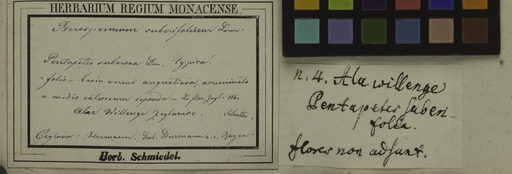 HERBARIUM REGIUM MONACENSE.
Pterospermum suberifolium Lam:
Pentapetes suberosa Lin. typica!
folia basi versus angustiora, acuminata
a medio extrorsum repanda — Lin. flor. Zeyl. 114.
Alae Willenge Zeylonice.
Ceylona: Hermann,
Herb. Schmiedel.
n. 4. Ala willenge
Pentapetes suberi-
folia.
flores non adsunt.